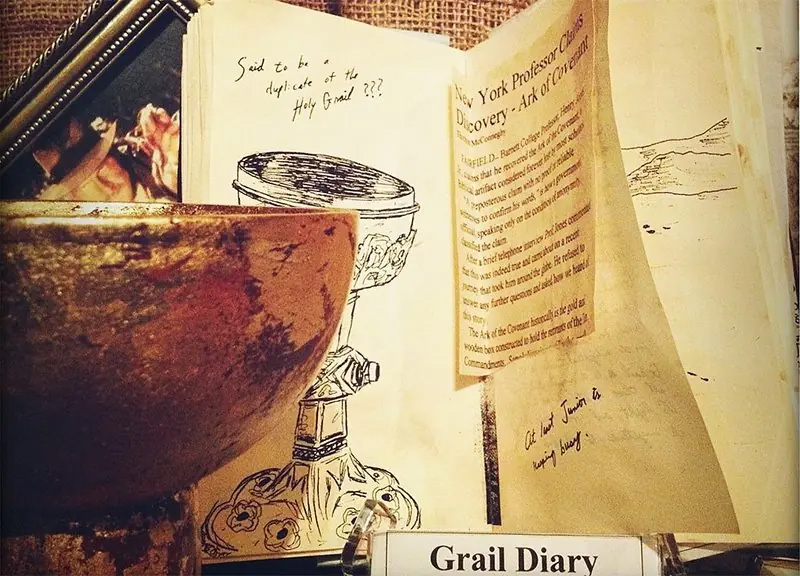 Said to be a
duplicate of the
Holy Grail ???
New York Professor Claims
Discovery - Ark of Covenant
McConneghy
FAIRFIELD.- Barnett College Professor, Henry Jones
Jr. claims that he recovered the Ark of the Covenant
artifact considered forever lost by most scholars
"A preposterous claim with no proof or reliable
witnesses to confirm his words," is how a government
official, speaking only on the condition of anonymity
classified the claim.
After a brief telephone interview Prof. Jones commented
that this was indeed true and came about on a recent
journey that took him around the globe. He refused to
answer any further questions and asked how we heard of
this story.
The Ark of the Covenant historically is the gold and
wooden box constructed to hold the remnants of the
Commandments.
At last Junior is
keeping busy.
Grail Diary